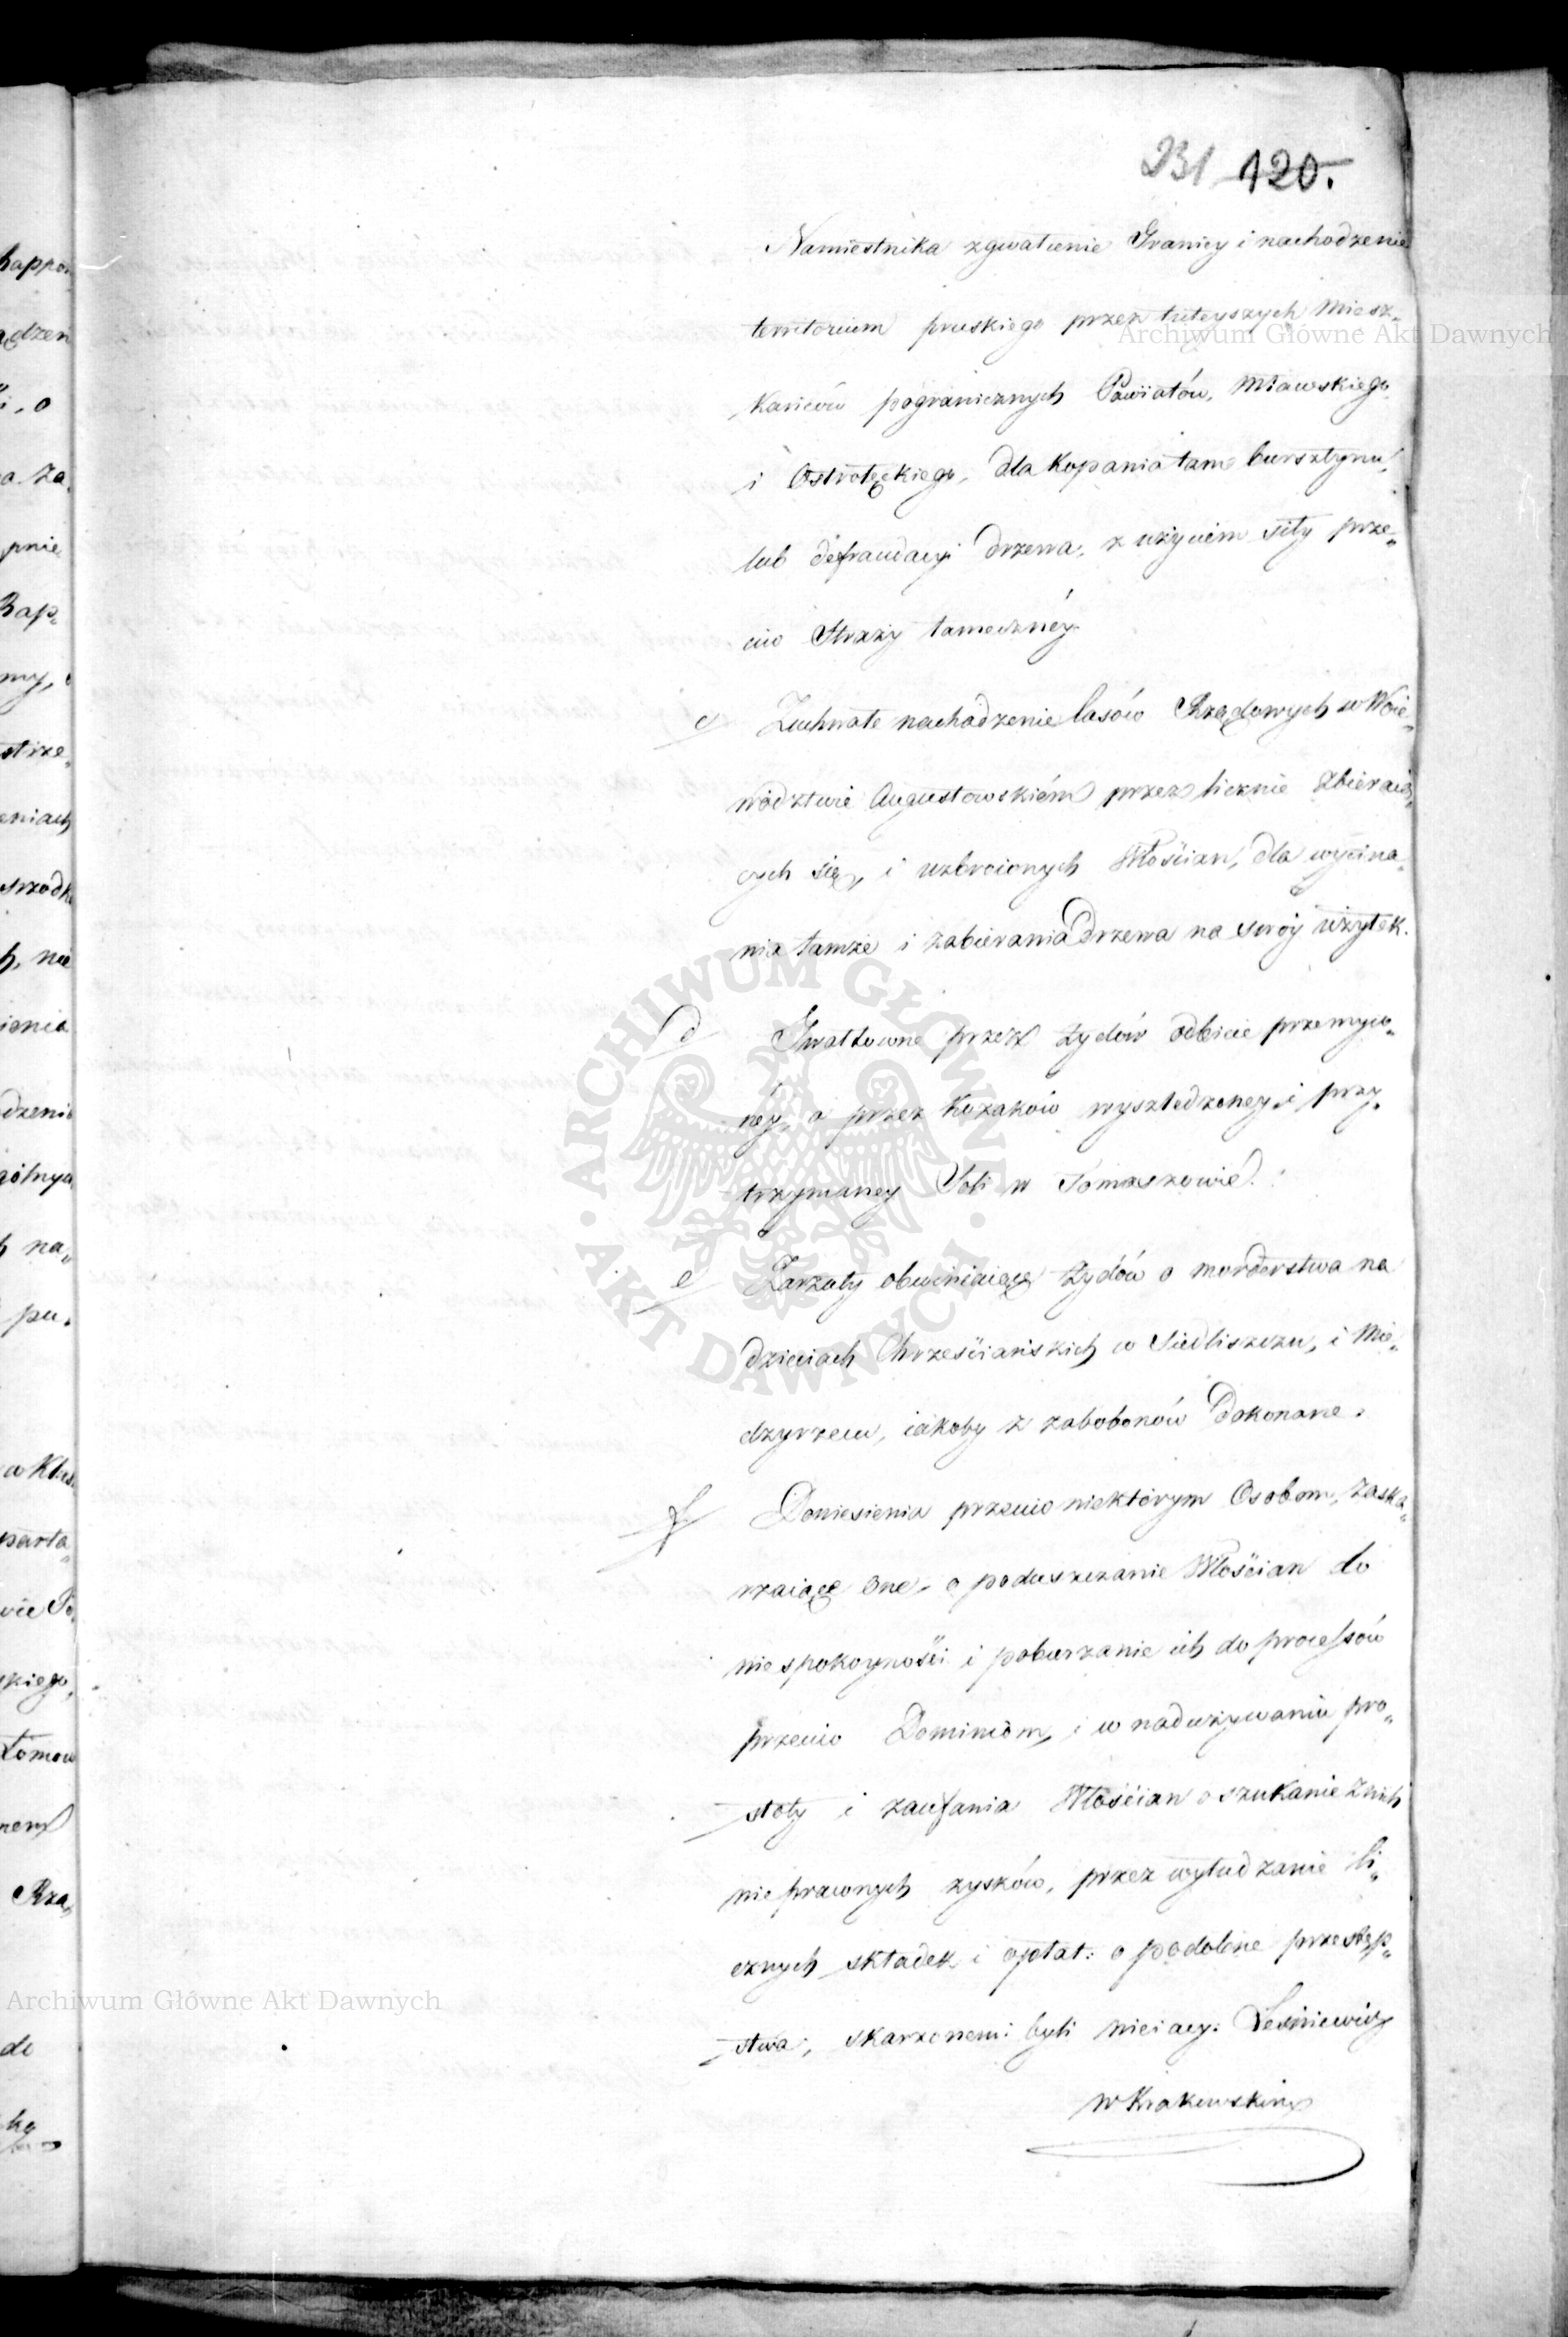 231 120.
Namiestnika zgwałcenie Granicy i nachodzenie
territorium pruskiego przez tuteyszych Miesz„
kańców pogranicznych Powiatów, Mławskiego
i Ostrołęckiego, dla kopania tam bursztynu,
lub defraudacyi drzewa, z użyciem siły prze„
ciw Straży tameczney
c Zuchwałe nachodzenie lasów Rządowych w Woie„
wództwie Augustowskiém przez licznie zbieraią„
cych się, i uzbroionych Włościan, dla wycina„
nia tamże i zabierania drzewa na swóy użytek.
d Gwałtowne przez Żydów odbicie przemyco„
néy, a przez Kozaków wyszledzoney i przy„
trzymaney Soli w Tomaszowie.
e Zarzuty obwiniaiące Żydów o morderstwa na
dzieciach Chrześciańskich w Siedliszczu, i Mię„
dzyrzecu, iakoby z zabobonów dokonane.
f Doniesienia przeciw niektórym Osobom, zaska„
rzaiące one, o poduszczanie Włościan do
niespokoyności i poburzanie ich do processów
przeciw Dominiom, i w nadużywaniu pro„
stoty i zaufania Włościan o szukanie z nich
nieprawnych zysków, przez wyłudzanie li„
cznych składek i opłat: o podobne przestęp„
stwa, skarżonemi byli nieiacy: Leśniewicz
w Krakowskim
happor
ądzeń
i, o
a Za
pnie
Rap„
my,
strze„
eniach
srzodk
h, nie
ienia
dzenie
gólnych
h na„
pu„
parta„
wie Po
skiego,
nem
Rzą„
de
Archiwum Główne Akt Dawnych
ARCHIWUM GŁÓWNE
AKT DAWNYCH
Archiwum Główne Akt Dawnych